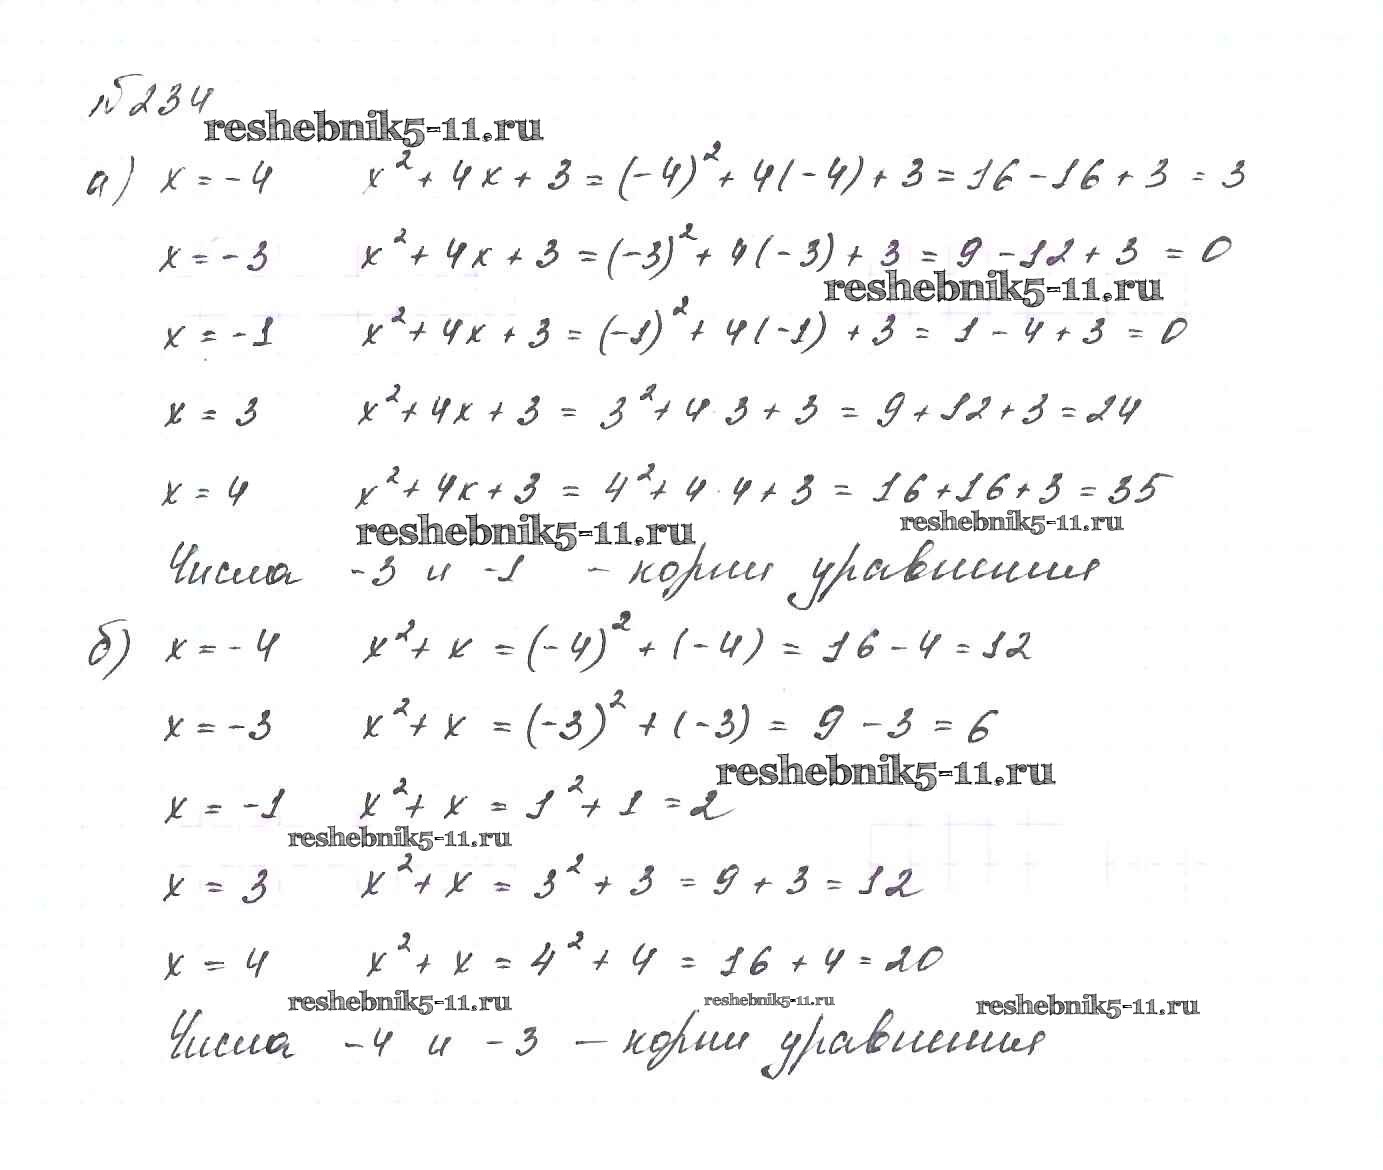 № 234
reshebnik5-11.ru
а) x = -4 x² + 4x + 3 = (-4)² + 4(-4) + 3 = 16 - 16 + 3 = 3
x = -3 x² + 4x + 3 = (-3)² + 4(-3) + 3 = 9 - 12 + 3 = 0
reshebnik5-11.ru
x = -1 x² + 4x + 3 = (-1)² + 4(-1) + 3 = 1 - 4 + 3 = 0
x = 3 x² + 4x + 3 = 3² + 4·3 + 3 = 9 + 12 + 3 = 24
x = 4 x² + 4x + 3 = 4² + 4·4 + 3 = 16 + 16 + 3 = 35
reshebnik5-11.ru reshebnik5-11.ru
Числа -3 и -1 - корни уравнения
б) x = -4 x² + x = (-4)² + (-4) = 16 - 4 = 12
x = -3 x² + x = (-3)² + (-3) = 9 - 3 = 6
reshebnik5-11.ru
x = -1 x² + x = 1² + 1 = 2
reshebnik5-11.ru
x = 3 x² + x = 3² + 3 = 9 + 3 = 12
x = 4 x² + x = 4² + 4 = 16 + 4 = 20
reshebnik5-11.ru reshebnik5-11.ru reshebnik5-11.ru
Числа -4 и -3 - корни уравнения